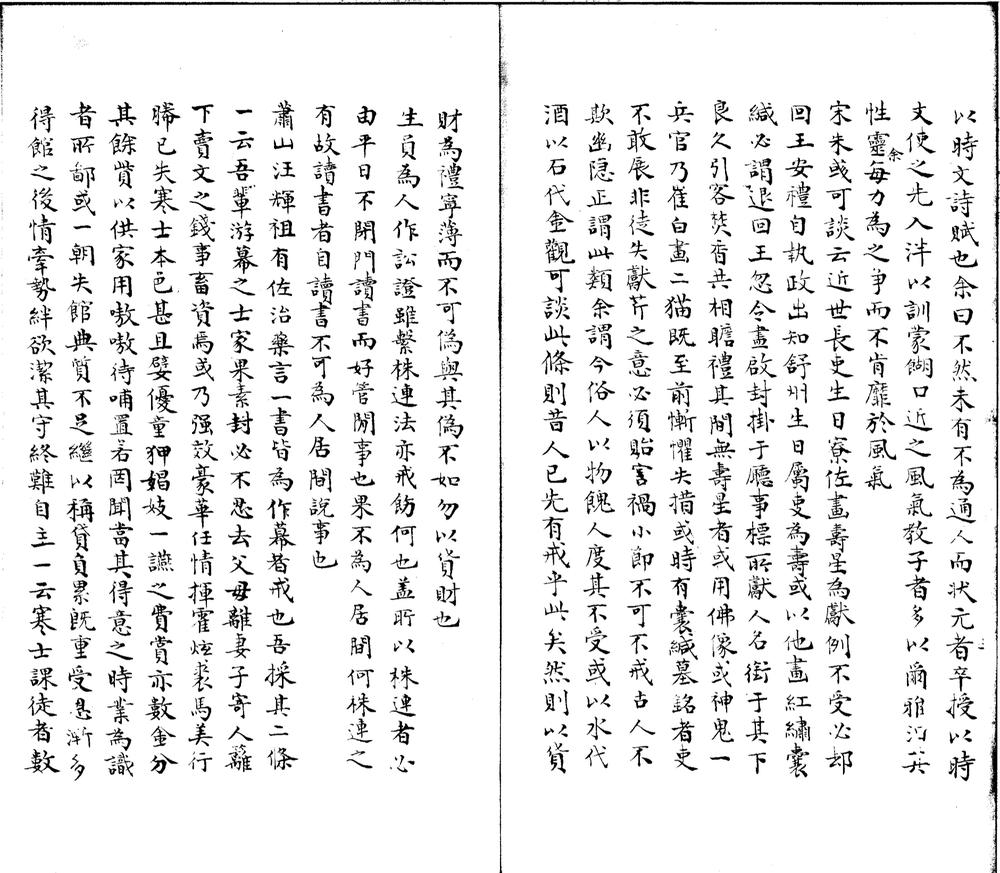 以時文詩賦也余曰不然未有不為通人而狀元者卒授以時
文使之先入泮以訓蒙餬口近之風氣教子者多以爾雅汩其
性靈余每力為之爭而不肯靡於風氣
宋朱或可談云近世長吏生日寮佐畫壽星為獻例不受必却
回王安禮自執政出知舒州生日屬吏為壽或以他畫紅繡囊
緘必謂退回王忽令畫啟封掛于廳事標所獻人名銜于其下
良久引客爇香共相瞻禮其間無壽星者或用佛像或神鬼一
兵官乃崔白畫二猫既至前慚懼失措或時有囊緘墓銘者吏
不敢展非徒失獻芹之意必須貽害禍小節不可不戒古人不
欺幽隐正謂此類余謂今俗人以物餽人度其不受或以水代
酒以石代金觀可談此條則昔人已先有戒乎此矣然則以貨
財為禮寧薄而不可偽與其偽不如勿以貨財也
生員為人作訟證雖繫株連法亦戒飭何也盖所以株連者必
由平日不閉門讀書而好管閒事也果不為人居間何株連之
有故讀書者自讀書不可為人居間說事也
蕭山汪輝祖有佐治藥言一書皆為作幕者戒也吾採其二條
一云吾輩游幕之士家果素封必不忍去父母離妻子寄人籬
下賣文之錢事畜資焉或乃强效豪華任情揮霍炫裘馬美行
縢已失寒士本色甚且嬖優童狎娼妓一讌之費賞亦數金分
其餘貲以供家用嗷嗷待哺置若罔聞當其得意之時業為識
者所鄙或一朝失館典質不足繼以稱貸負累既重受息漸多
得館之後情牽勢絆欲潔其守終難自主一云寒士課徒者數